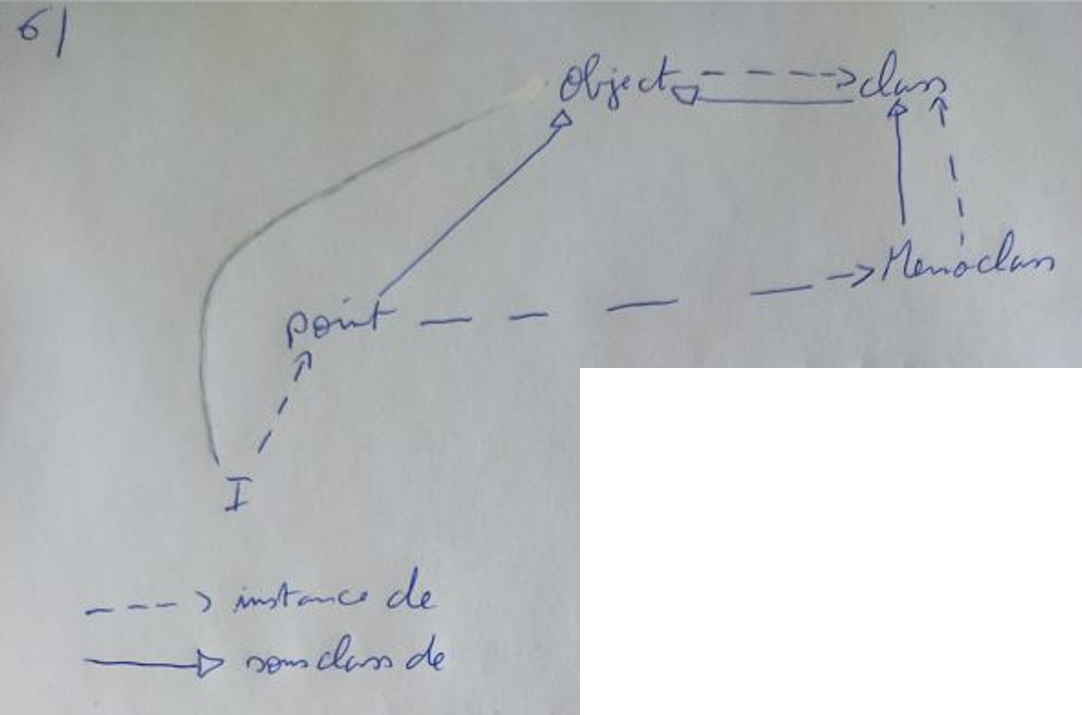 6/
Object class
Memoclass
point
I
instance de
sousclass de